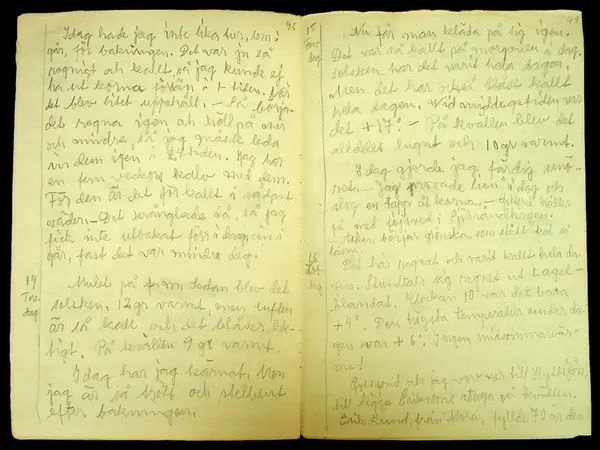 92
Idag hade jag inte lika tur, som i
går, för bakningen. Det var ju så
regnigt och kallt, så jag kunde ej
ha ut korna förrän i 1-tiden. När
det blev litet uppehåll. – Så börja-
de det regna igen och höll på mer
och mindre, så jag måste leda
in dem igen i tiden. Jag har
en fem veckors kalv med dem.
För den är det för kallt i sådant
väder. – Det krånglade då, så jag
fick inte utbakat förr idag, än i
går, fast det var mindre deg.
14
Tors
dag
Mulet på f.m. Sedan blev det
solsken. 12 gr varmt, men luften
är så kall och det blåser, kraf-
tigt. På kvällen 9 gr varmt.
Idag har jag kärnat. Men
jag är så trött och stelbent
efter bakningen.
93
15
Fre
dag
Nu får man kläda på sig igen.
Det var så kallt på morgonen i dag.
Solsken har det varit hela dagen.
Men det har också blåst kallt
hela dagen. Vid middagstiden var
det +17°. – På kvällen blev det
alldeles lugnt och 10 gr varmt.
Idag gjorde jag färdig smö-
ret. – Jag provade lien i dag och
slog en tapp åt korna. –
på med
taken, börjar grönska, som stått kal så
länge.
16
Lör
dag
Det har regnat och varit kallt hela da-
gen. Stundtals såg regnet ut hagel-
blandat. Klockan 10 var det bara
+4°. Den högsta temperatur under da-
gen var +6°. Ingen midsommarvär-
me!
och jag var ner till
till Erikssons stuga på kvällen.
Erik Lund, från Mora, fyllde 70 år den